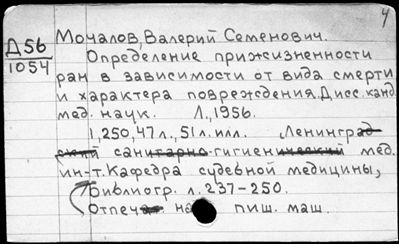 4
Мочалов, Валерий Семенович.
Д56
1054
Определение прижизненности
ран в зависимости от вида смерти
и характера повреждения. Дисс. канд.
мед. наук. Л., 1956.
1, 250, 47 л., 51 л. илл. Ленинград
ский санитарно-гигиенический мед.
ин-т. Кафедра судебной медицины,
Библиогр. л. 237-250.
Отпеча на пиш. маш.